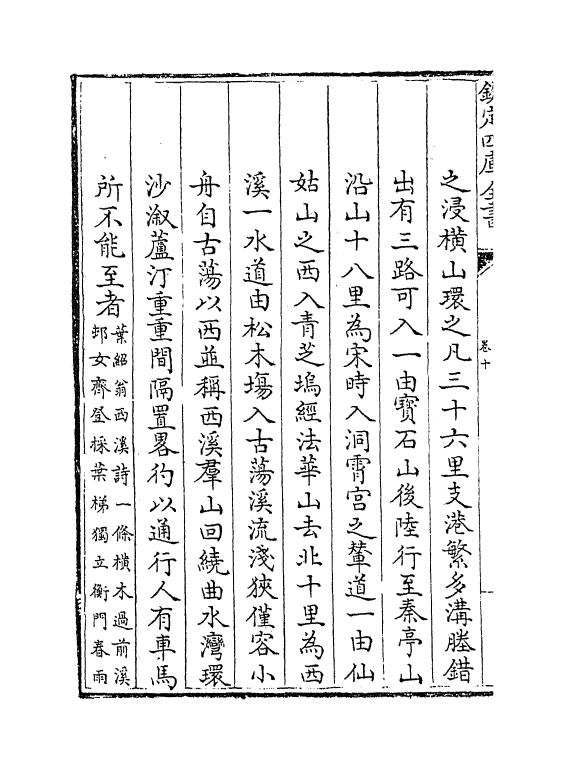 欽定四庫全書
卷十
之浸橫山環之凡三十六里支港繁多溝塍錯
出有三路可入一由寶石山後陸行至秦亭山
沿山十八里為宋時入洞霄宮之輦道一由仙
姑山之西入青芝塢經法華山去北十里為西
溪一水道由松木場入古蕩溪流淺狹僅容小
舟自古蕩以西並稱西溪羣山回繞曲水灣環
沙溆蘆汀重重間隔置畧彴以通行人有車馬
所不能至者
葉紹翁西溪詩一條橫木過前溪
邨女齊登採葉梯獨立衡門春雨